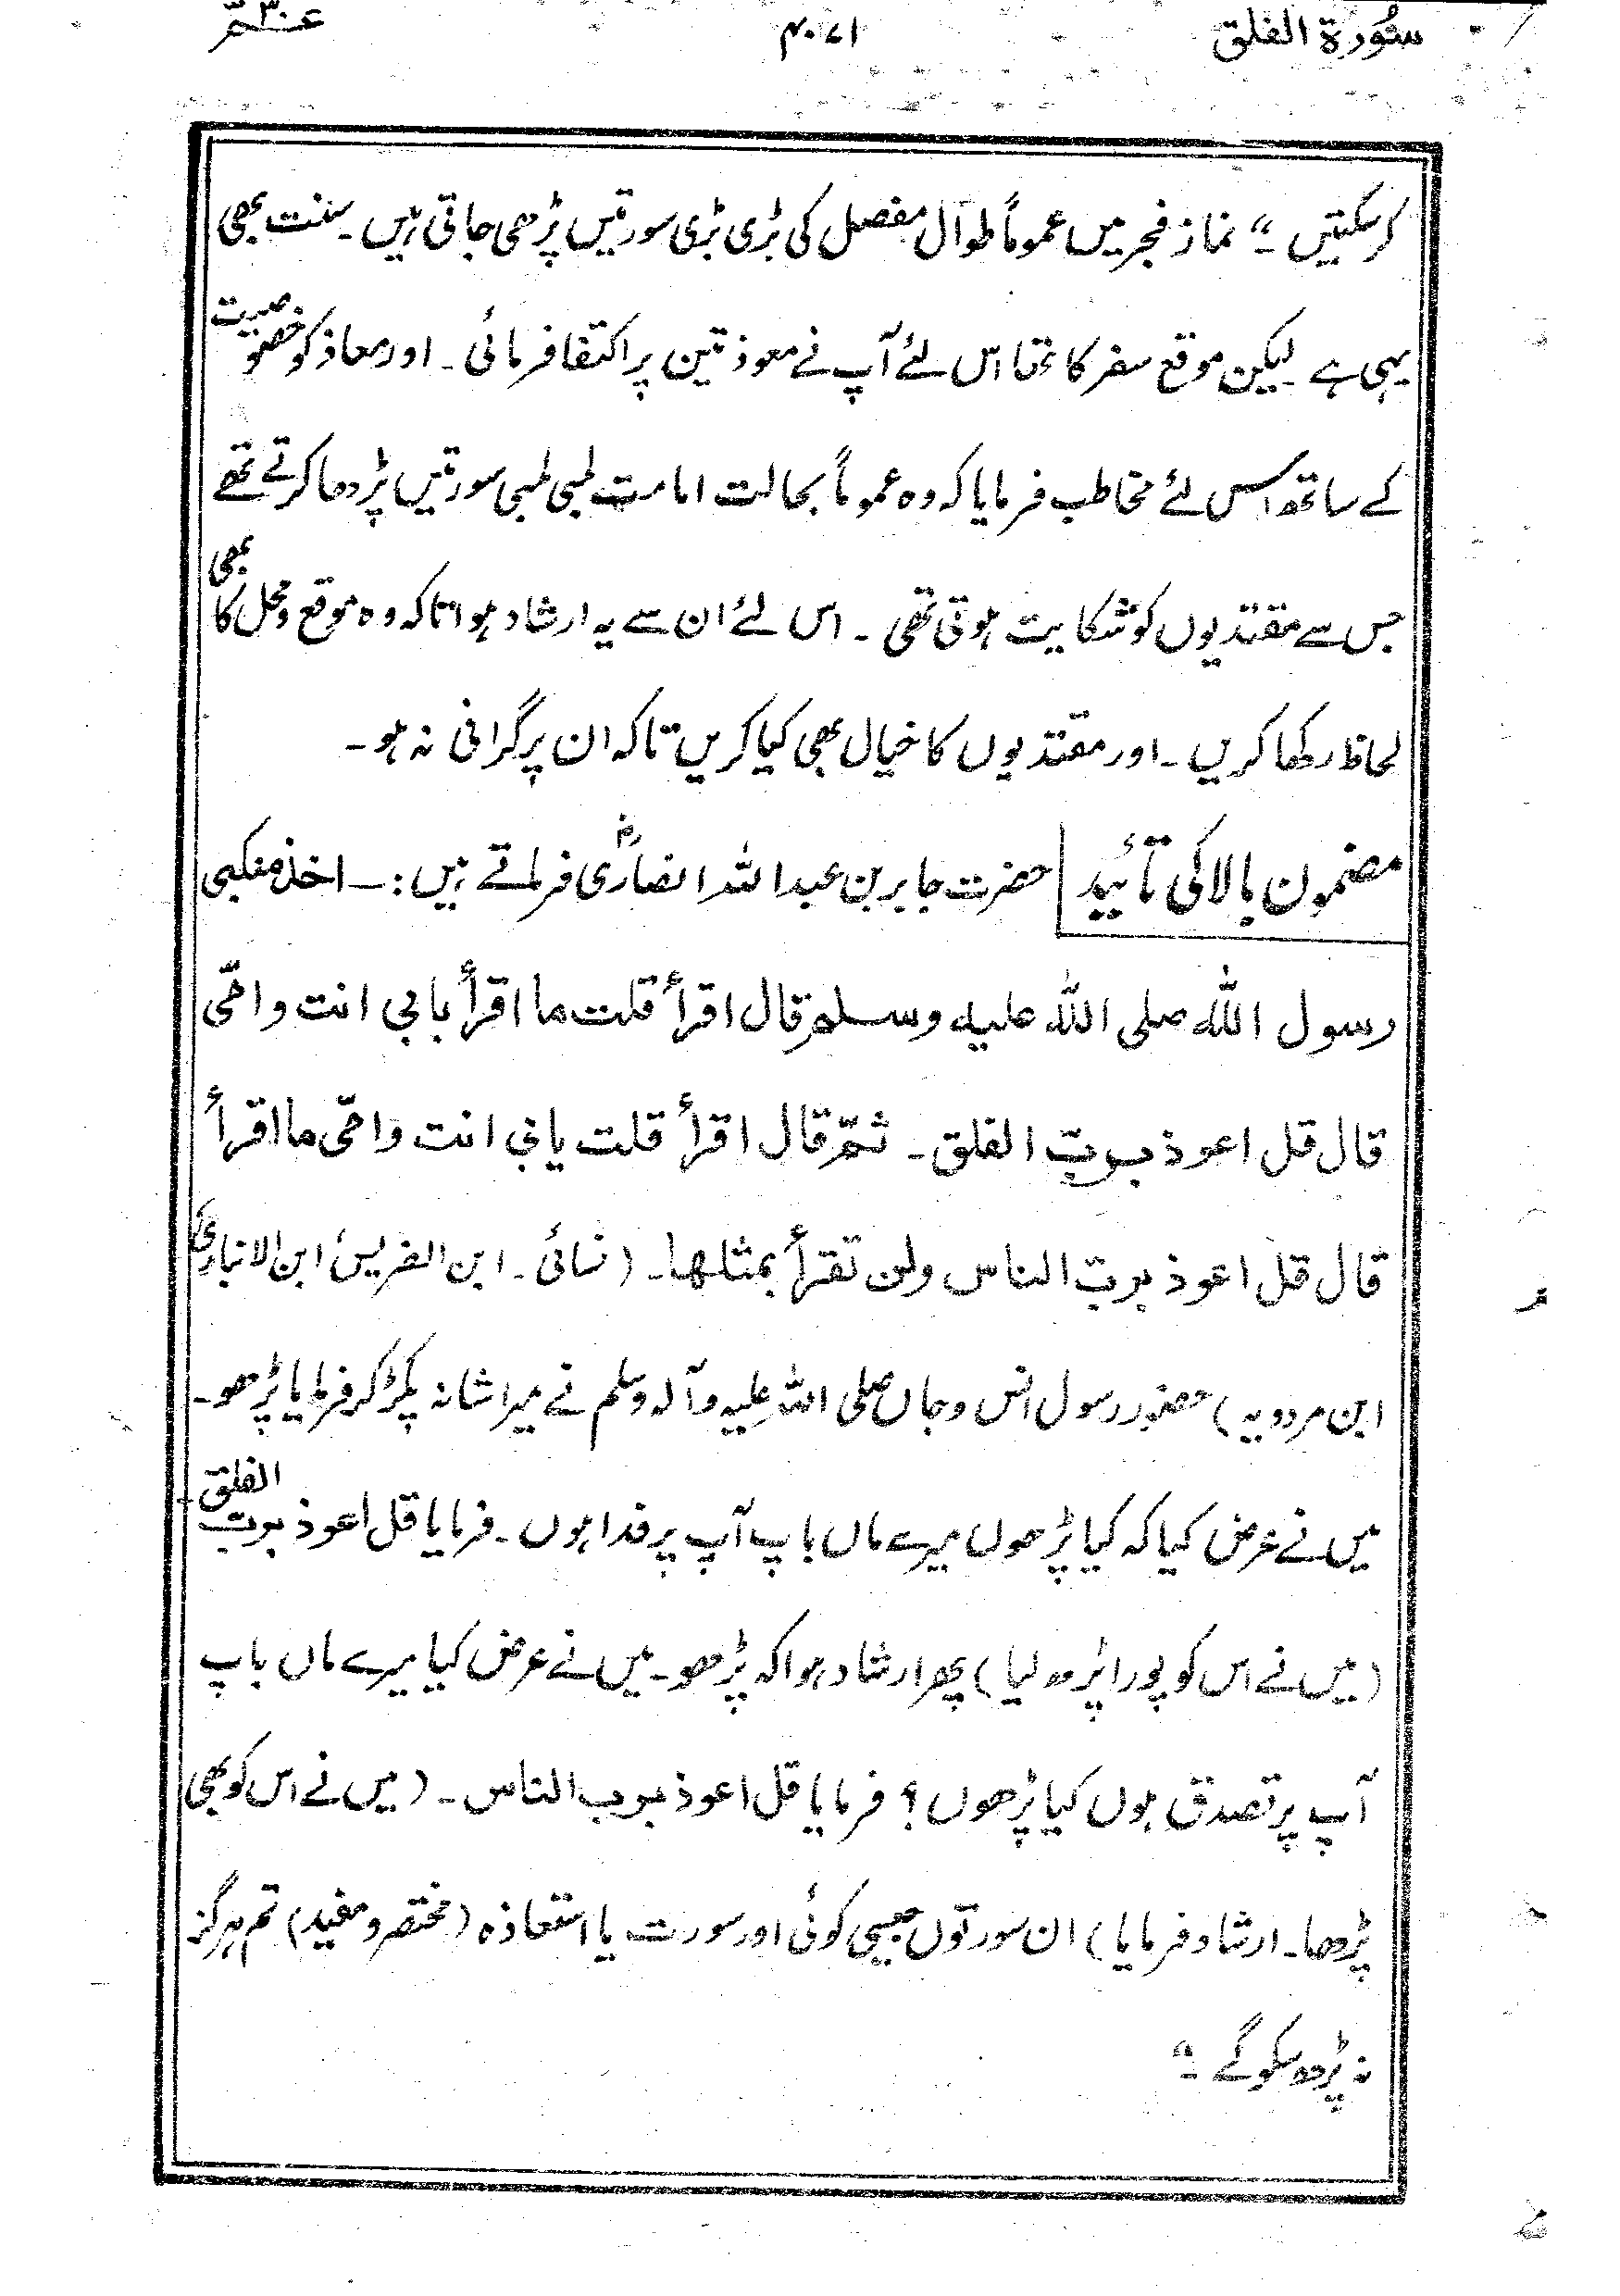 سُورة الفلق
۴۰۷۱
عـــمّ ۳۰
کر سکتیں ۔“ نماز فجر میں عموماً طوال مفصل کی بڑی بڑی سورتیں پڑھی جاتی ہیں ۔ سنت بھی
یہی ہے ۔ لیکن موقع سفر کا تھا اس لئے آپ نے معوذتین پر اکتفا فرمائی ۔ اور معاذ کو خصوصیت
کے ساتھ اس لئے مخاطب فرمایا کہ وہ عموماً بحالت امامت لمبی لمبی سورتیں پڑھا کرتے تھے
جس سے مقتدیوں کو شکایت ہوتی تھی ۔ اس لئے ان سے یہ ارشاد ہوا تاکہ وہ موقع و محل کا بھی
لحاظ رکھا کریں ۔ اور مقتدیوں کا خیال بھی کیا کریں تاکہ ان پر گرانی نہ ہو ۔
مضمون بالا کی تائید حضرت جابر بن عبداللہ انصاریؓ فرماتے ہیں :۔ اخذ منکبی
رسول اللّٰہ صلی اللّٰہ علیہ وسلم قال اقرأ قلت ما اقرأ بابی انت و امّی
قال قل اعوذ بربّ الفلق ۔ ثمّ قال اقرأ قلت بابی انت وامّی ما اقرأ
قال قل اعوذ بربّ الناس ولن تقرأ بمثلھا ۔ ( نسائی ۔ ابن الضریس ابن الانباری
ابن مردویہ ) حضور رسول انس و جاں صلی اللہ علیہ وآلہ وسلم نے میرا شانہ پکڑ کر فرمایا پڑھو ۔
میں نے عرض کیا کہ کیا پڑھوں میرے ماں باپ آپ پر فدا ہوں ۔ فرمایا قل اعوذ بربّ الفلق
( میں نے اس کو پورا پڑھ لیا ) پھر ارشاد ہوا کہ پڑھو ۔ میں نے عرض کیا میرے ماں باپ
آپ پر تصدق ہوں کیا پڑھوں ؟ فرمایا قل اعوذ برب الناس ۔ ( میں نے اس کو بھی
پڑھا ۔ ارشاد فرمایا ) ان سورتوں جیسی کوئی اور سورت یا استعاذہ ( مختصر و مفید ) تم ہرگز
نہ پڑھ سکو گے ۔“